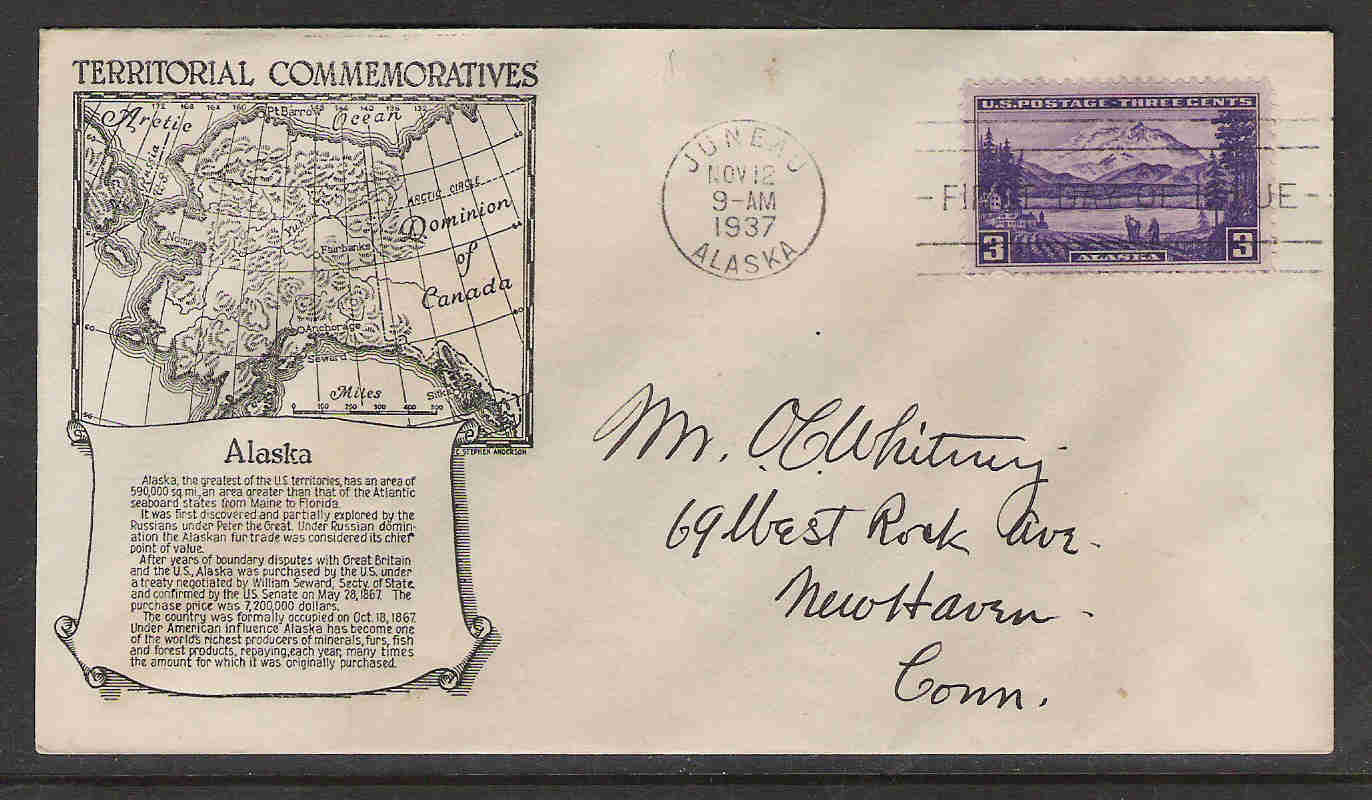 TERRITORIAL COMMEMORATIVES
172 168 164 160 140 136 132
Pt. Barrow
Arctic Ocean
Russia
U.S.
ARCTIC CIRCLE
Dominion
of
Canada
Nome
Yukon
Fairbanks
Anchorage
Seward
Sitka
Miles
0 100 200 300 400 500
60
56
C. STEPHEN ANDERSON
Alaska
Alaska, the greatest of the U.S. territories, has an area of
590,000 sq mi., an area greater than that of the Atlantic
seaboard states from Maine to Florida.
It was first discovered and partially explored by the
Russians under Peter the Great. Under Russian domin-
ation the Alaskan fur trade was considered its chief
point of value.
After years of boundary disputes with Great Britain
and the U.S., Alaska was purchased by the U.S. under
a treaty negotiated by William Seward, Secty. of State
and confirmed by the U.S. Senate on May 28, 1867. The
purchase price was 7,200,000 dollars.
The country was formally occupied on Oct. 18, 1867.
Under American influence Alaska has become one
of the world's richest producers of minerals, furs, fish
and forest products, repaying, each year, many times
the amount for which it was originally purchased.
JUNEAU
NOV 12
9-AM
1937
ALASKA
U.S. POSTAGE - THREE CENTS
- FIRST DAY OF ISSUE -
3 ALASKA 3
Mr. O.C. Whitney
69 West Rock Ave.
New Haven -
Conn.